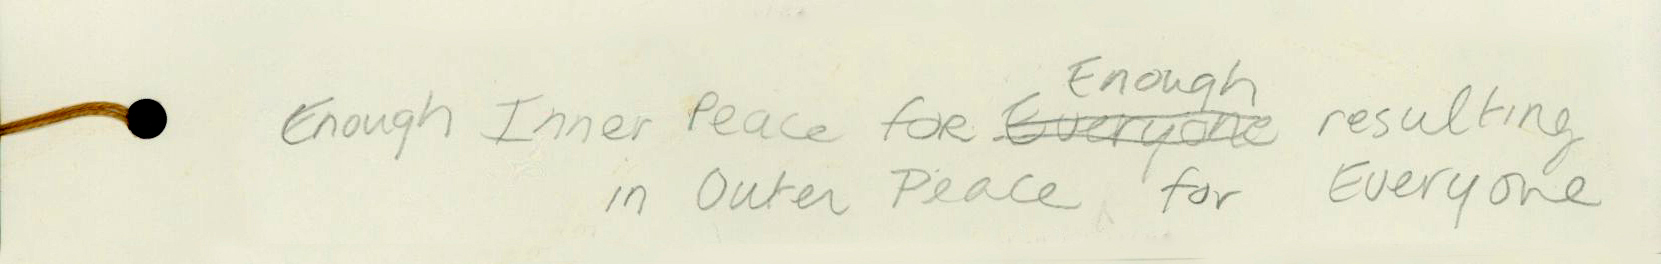 Enough
Enough Inner Peace for Everyone resulting
in Outer Peace for Everyone